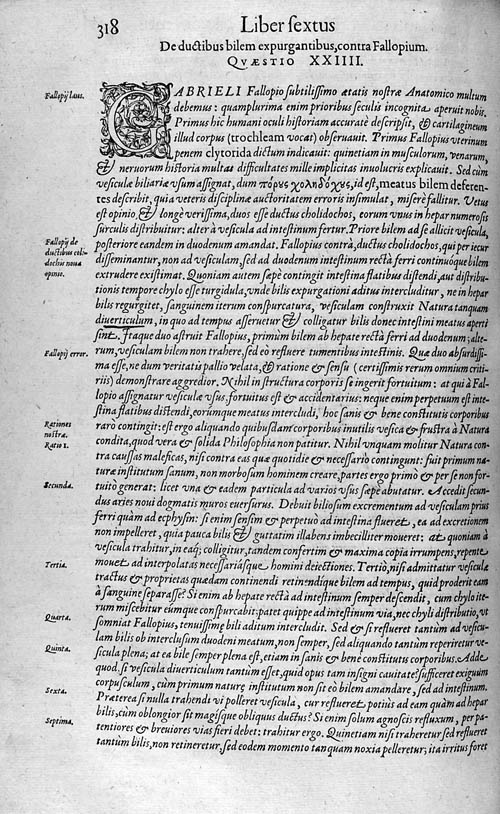 318
Liber sextus
De ductibus bilem expurgantibus, contra Fallopium.
QVÆSTIO XXIIII.
Fallopij laus.
GABRIELI Fallopio subtilissimo ætatis nostræ Anatomico multum
debemus: quamplurima enim prioribus seculis incognita aperuit nobis.
Primus hic humani oculi historiam accuratè descripsit, & cartilagineum
illud corpus (trochleam vocat) obseruauit. Primus Fallopius vterinum
penem clytorida dictum indicauit: quinetiam in musculorum, venarum,
& neruorum historia multas difficultates mille implicitas inuolucris explicauit. Sed cùm
vesiculæ biliariæ vsum assignat, dum πόρυς χοληδόχυς, id est, meatus bilem deferen-
tes describit, quia veteris disciplinæ auctoritatem erroris insimulat, miserè fallitur. Vetus
est opinio, & longè verissima, duos esse ductus cholidochos, eorum vnus in hepar numerosis
surculis distribuitur: alter à vesicula ad intestinum fertur. Priore bilem ad se allicit vesicula,
posteriore eandem in duodenum amandat. Fallopius contrà, ductus cholidochos, qui per iecur
Fallopij de
ductibus coli-
dochis noua
opinio.
disseminantur, non ad vesiculam, sed ad duodenum intestinum rectà ferri continuóque bilem
extrudere existimat. Quoniam autem sæpè contingit intestina flatibus distendi, aut distribu-
tionis tempore chylo esse turgidula, vnde bilis expurgationi aditus intercluditur, ne in hepar
bilis regurgitet, sanguinem iterum conspurcatura, vesiculam construxit Natura tanquam
diuerticulum, in quo ad tempus asseruetur & colligatur bilis donec intestini meatus aperti
sint. Itaque duo astruit Fallopius, primùm bilem ab hepate rectà ferri ad duodenum: alte-
Fallopij error.
rum, vesiculam bilem non trahere, sed eò refluere tumentibus intestinis. Quæ duo absurdissi-
ma esse, ne dum veritatis pallio velata, & ratione & sensu (certissimis rerum omnium crite-
riis) demonstrare aggredior. Nihil in structura corporis se ingerit fortuitum: at quà à Fal-
lopio assignatur vesiculæ vsus, fortuitus est & accidentarius: neque enim perpetuum est inte-
stina flatibus distendi, eorúmque meatus intercludi, hoc sanis & bene constitutis corporibus
Rationes
nostræ.
Ratio 1.
rarò contingit: est ergo aliquando quibusdam corporibus inutilis vesica & frustrà à Natura
condita, quod vera & solida Philosophia non patitur. Nihil vnquam molitur Natura con-
tra caussas maleficas, nisi contra eas quæ quotidie & necessariò contingunt: fuit primum na-
turæ institutum sanum, non morbosum hominem creare, partes ergo primò & per se non for-
tuitò generat: licet vna & eadem particula ad varios vsus sæpè abutatur. Accedit secun-
Secunda.
dus aries noui dogmatis muros euersurus. Debuit biliosum excrementum ad vesiculam prius
ferri quàm ad ecphysin: si enim sensim & perpetuò ad intestina flueret, ea ad excretionem
non impelleret, quia pauca bilis & guttatim illabens imbecilliter moueret: at quoniam à
vesicula trahitur, in eáq; colligitur, tandem confertim & maxima copia irrumpens, repente
Tertia.
mouet ad interpolatas necessariásque homini deiectiones. Tertiò, nisi admittatur vesiculæ
tractus & proprietas quædam continendi retinendíque bilem ad tempus, quid proderit eam
à sanguine separasse? Si enim ab hepate rectà ad intestinum semper descendit, cum chylo ite-
rum miscebitur eúmque conspurcabit: patet quippe ad intestinum via, nec chyli distributio, vt
Quarta.
somniat Fallopius, tenuissimæ bili aditum intercludit. Sed & si reflueret tantùm ad vesicu-
lam bilis ob interclusum duodeni meatum, non semper, sed aliquando tantùm reperiretur ve-
Quinta.
sicula plena; at ea bile semper plena est, etiam in sanis & bene constitutis corporibus. Adde
quod, si vesicula diuerticulum tantùm esset, quid opus tam insigni cauitate? sufficeret exiguum
corpusculum, cùm primum naturæ institutum non sit eò bilem amandare, sed ad intestinum.
Sexta.
Præterea si nulla trahendi vi polleret vesicula, cur reflueret potiùs ad eam quàm ad hepar
bilis, cùm oblongior sit magisque obliquus ductus? Si enim solum agnoscis refluxum, per pa-
Septima.
tentiores & breuiores vias fieri debet: trahitur ergo. Quinetiam nisi traheretur sed reflueret
tantùm bilis, non retineretur, sed eodem momento tanquam noxia pelleretur; ita irritus foret